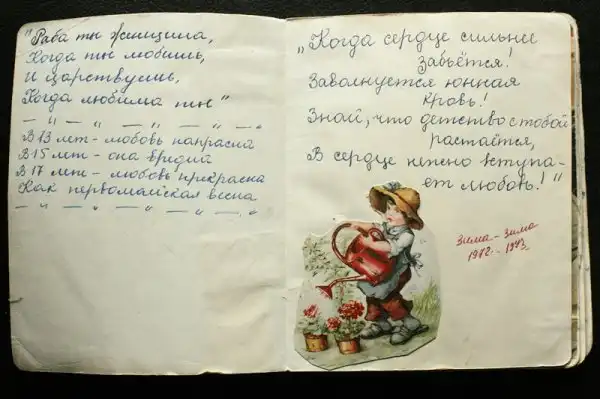 "Раба ты женщина,
Когда ты любишь,
И царствуешь,
Когда любима ты"
— " — " — " — " — " —.
В 13 лет - любовь напрасна
В 15 лет - она вредна
В 17 лет - любовь прекрасна
Как первомайская весна
— " — " — " — " — " —.
„Когда сердце сильнее
забьётся!
Заволнуется юнная
кровь!
Знай, что детство с тобой
растаётся,
В сердце нежно вступа-
ет любовь!"
Зима - зима
1972 - 1973.